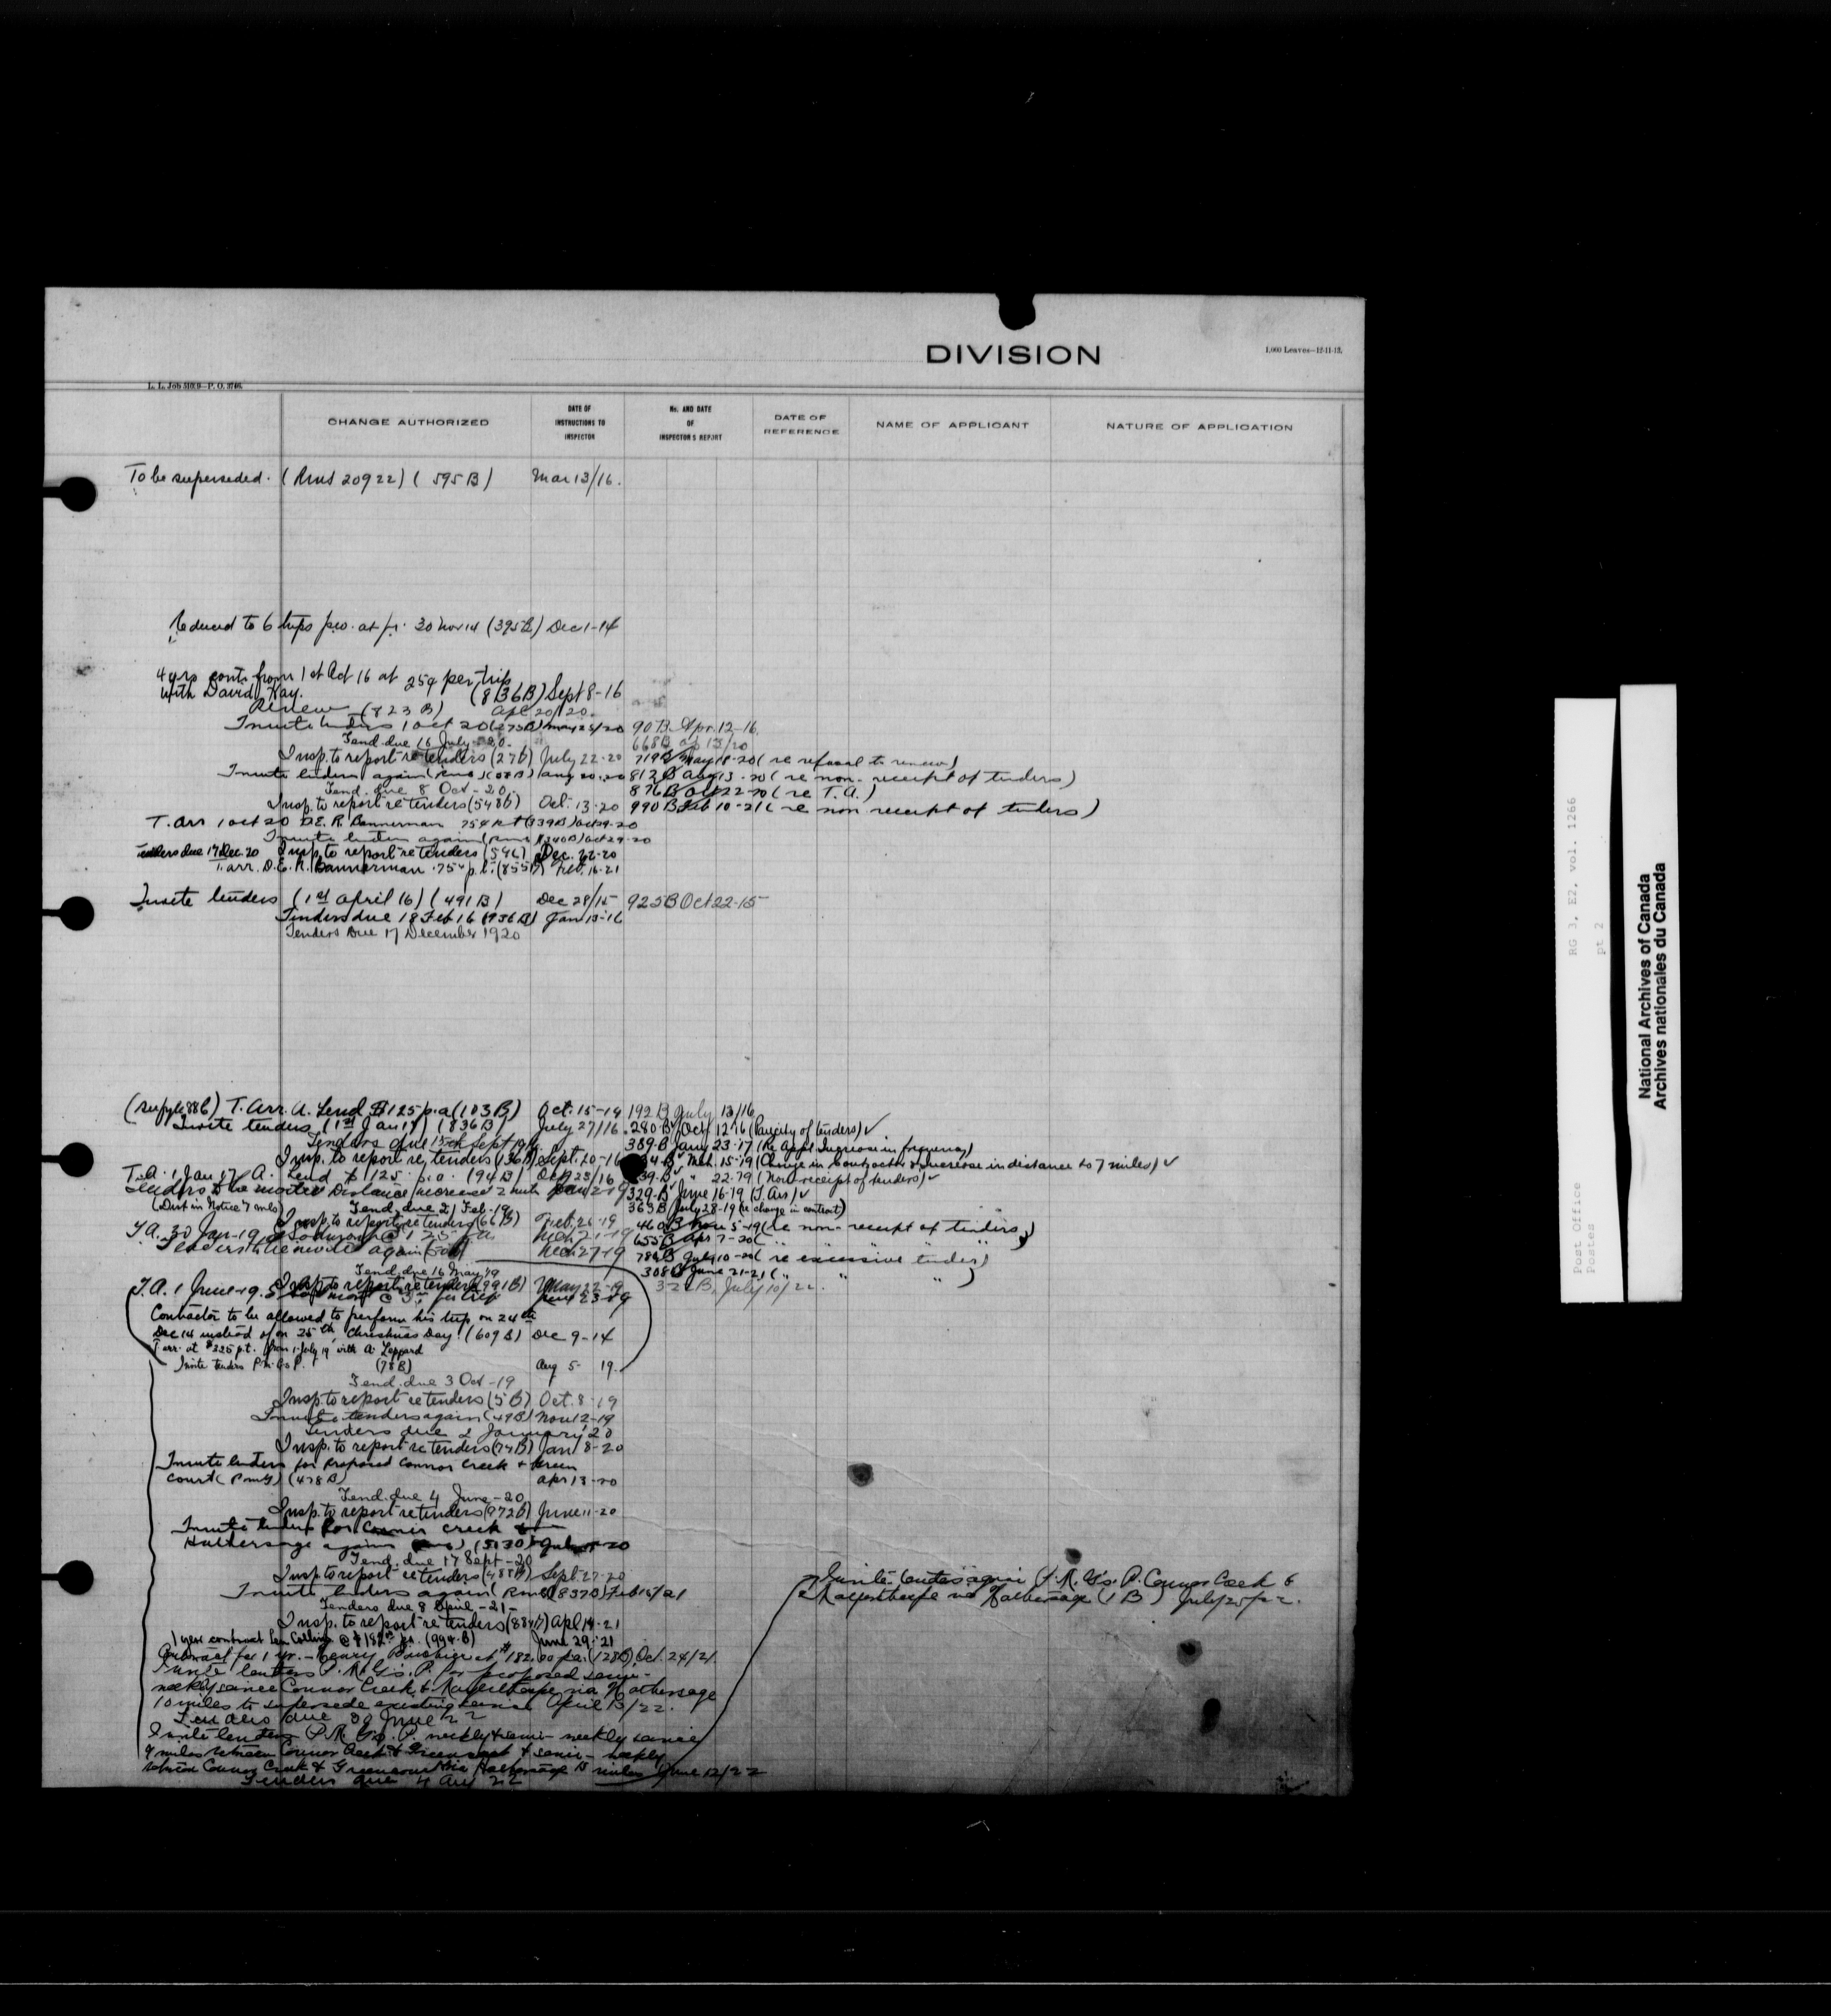 DIVISION
1,000 Leaves—12-11-13.
L. L. Job 51030—P. O. 3746.
CHANGE AUTHORIZED
DATE OF INSTRUCTIONS TO INSPECTOR
No. AND DATE OF INSPECTOR'S REPORT
DATE OF REFERENCE
NAME OF APPLICANT
NATURE OF APPLICATION
To be superseded. (Rms 20922) (595B) Mar 13/16.
Reduced to 6 trips p.w. at fr. 30 Nov 14 (395B) Dec 1-14
4 yrs cont. from 1st Oct 16 at 25¢ per trip
with David Kay. (836B) Sept 8-16
Renew (723B) Apl 20/20.
Invite tenders 1 Oct 20 May 25/20 90B Apr. 12-16.
Tend. due 16 July - 20. 668B ap 13/20
Insp. to report re tenders (27B) July 22-20 719B May 18-20 (re refusal to renew)
Invite tenders again Aug 20-20 812B Aug 13-20 (re non-receipt of tenders)
Tend. due 8 Oct - 20. 876B Oct 22-20 (re T.A.)
Insp. to report re tenders (548B) Oct. 13-20 990B Feb 10-21 (re non receipt of tenders)
T. arr 1 Oct 20 D.E.R. Bannerman 75¢ p t (339B) Oct 29-20
Invite tenders again (340B) Oct 29-20
Tenders due 17 Dec. 20 Insp. to report re tenders (54B) Dec. 22-20
T. arr. D.E.R. Bannerman .75¢ p.t. (855B) Feb. 16-21
Invite tenders (1st April 16) (491B) Dec 28/15 925B Oct 22-15
Tenders due 18 Feb 16 (936B) Jan 13-16
Tenders Due 17 December 1920
T. Arr. A. Lend $125 p.a (103B) Oct. 15-14 192B July 13/16
Invite tenders (1st Jan 17) (836B) July 27/16 280-B Oct 12-16 (Paucity of tenders) ✓
Tenders due 15th Sept 1916 389-B Jany 23-17 (Re Appl. Increase in frequency)
Insp. to report re tenders (136B) Sept. 20-16 34-B Mch. 15-19 (Change in Contractor & increase in distance to 7 miles) ✓
T.A. 1 Jan 17 A. Lend $125 p.a. (94B) Oct 23/16 39-B " 22-19 (Non-receipt of tenders) ✓
Tenders to be invited Distance increase 2 miles 329-B June 16-19 (T. Arr) ✓
(Dist in Notice 7 mls) Tend. due 21 Feb-19 363B July 28-19 (re change in contract)
Insp. to report re tenders (66B) Feb. 26-19 460B Nov 5-19 (re non-receipt of tenders)
T.A. 30 Jan-19 @ 125 p.a. Mch 21-19 655B Apr 7-20 ( " " " )
Tenders to be invited again Mch 27-19 784B July 10-20 (re excessive tender)
Tend. due 16 May 19 308B June 21-21 ( " " " )
Insp. to report re tenders (991B) May 22-19 322B, July 10/22.
T.A. 1 June-19.
Contractor to be allowed to perform his trip on 24th
Dec 14 instead of on 25th, Christmas Day. (609B) Dec 9-14
T arr. at $2.25 p.t. from 1-July 19 with A. Leppard
Invite tenders P.M.G's P. (78B) Aug 5 19.
Tend. due 3 Oct-19
Insp. to report re tenders (5B) Oct. 8-19
Invite tenders again (49B) Nov 12-19
Tenders due 2 January '20
Insp. to report re tenders (74B) Jan 8-20
Invite tenders for Proposed Connor Creek & Green
Court (Pmg) (478B) Apr 13-20
Tend. due 4 June-20
Insp. to report re tenders (972B) June 11-20
Invite tenders for Connor Creek &
Hathersage again
Tend. due 17 Sept-20
Insp. to report re tenders (488B) Sept. 27-20
Invite tenders again (Rms) (837B) Feb 15/21
Tenders due 8 April-21-
Insp. to report re tenders (884B) Apl 14-21
1 year contract Len Collins @ $182.00 pa. (994-B) June 29-21
Contract for 1 yr. - Henry at $182.00 p.a. (128B) Oct. 24/21
Invite tenders P.M.G's. P. for proposed semi-
weekly service Connor Creek & via Hathersage
10 miles to supersede existing service April 13/22.
Tenders due 30 June 22
Invite tenders P.M.G's. P. weekly & semi-weekly service
9 miles between Connor Creek & Greencourt & semi-weekly
between Connor Creek & Greencourt via Hathersage 15 miles June 12/22
Tenders due 4 Aug 22
Invite tenders again P.M.G's. P. Connor Creek &
via Hathersage (1B) July 25/22.
RG 3, E2, vol. 1266
pt 2
Post Office
Postes
National Archives of Canada
Archives nationales du Canada